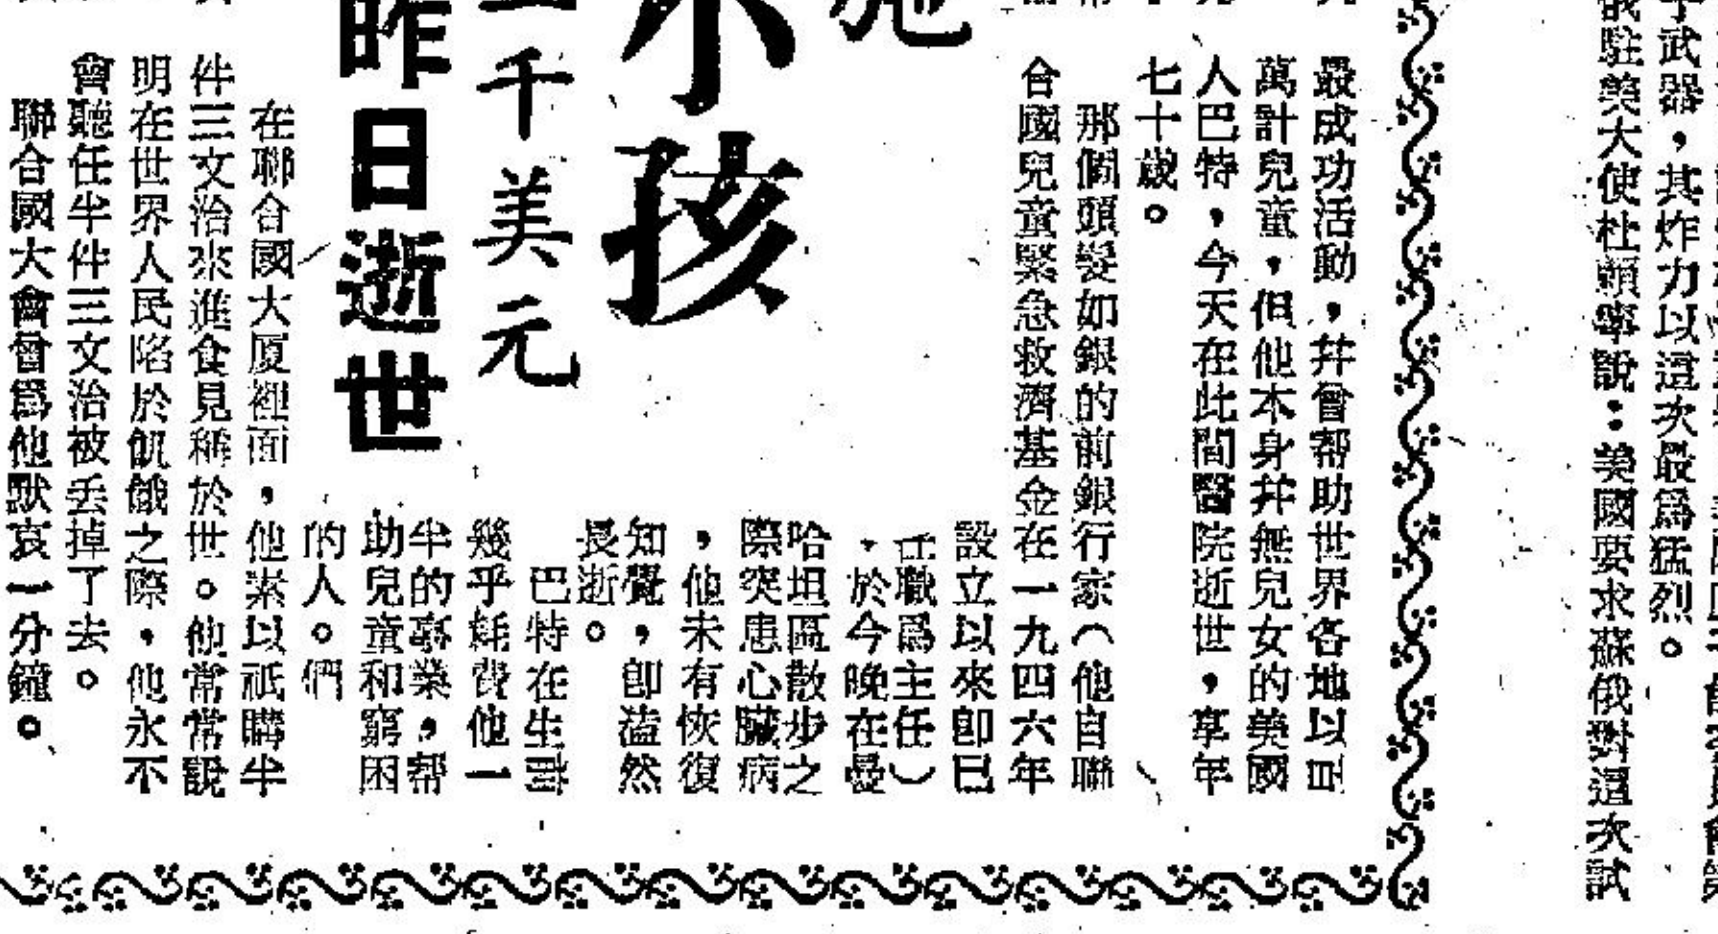 字武器，其炸力以這次最爲猛烈。
俄駐美大使杜賴寧說：美國要求蘇俄對這次試
最成功活動，幷曾帮助世界各地以
萬計兒童，但他本身幷無兒女的美國
人巴特，今天在此間醫院逝世，享年
七十歲。
那個頭髮如銀的前銀行家（他自聯
合國兒童緊急救濟基金在一九四六年
設立以來卽已
任職爲主任）
，於今晚在曼
哈坦區散步之
際突患心臟病
，他未有恢復
知覺，卽溘然
長逝。
小孩
千美元
昨日逝世
巴特在生時
幾乎耗費他一
半的事業，帮
助兒童和窮困
的人。們
在聯合國大厦裡面，他素以祇購半
件三文治來進食見稱於世。他常常說
明在世界人民陷於飢餓之際，他永不
會聽任半件三文治被丢掉了去。
聯合國大會曾爲他默哀一分鐘。